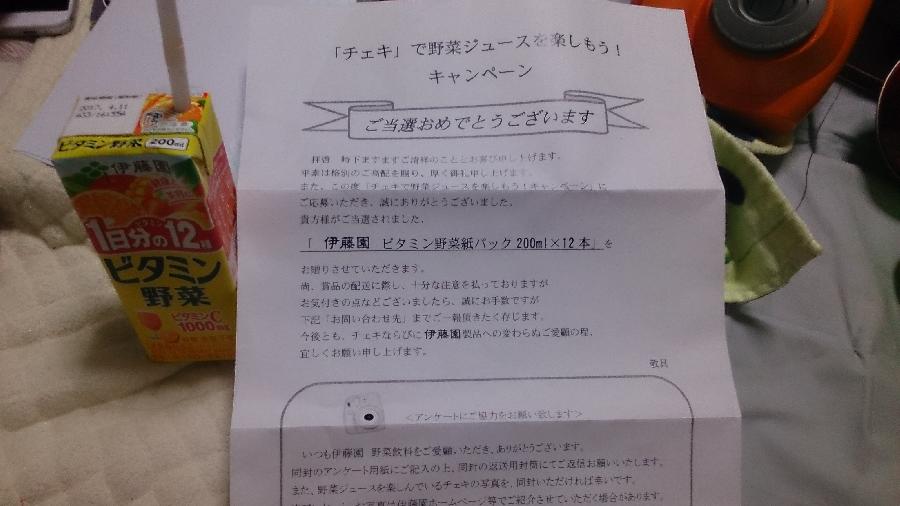 「チェキ」で野菜ジュースを楽しもう！
キャンペーン
ご当選おめでとうございます
拝啓　時下ますますご清祥のこととお喜び申し上げます。
平素は格別のご高配を賜り、厚く御礼申し上げます。
また、この度「チェキで野菜ジュースを楽しもう！キャンペーン」に
ご応募いただき、誠にありがとうございました。
貴方様がご当選されました、
「 伊藤園　ビタミン野菜紙パック 200ml×12本」を
お贈りさせていただきます。
尚、賞品の配送に際し、十分な注意を払っておりますが
お気付きの点などございましたら、誠にお手数ですが
下記「お問い合わせ先」までご一報頂きたく存じます。
今後とも、チェキならびに伊藤園製品への変わらぬご愛顧の程、
宜しくお願い申し上げます。
敬具
＜アンケートにご協力をお願い致します＞
いつも伊藤園　野菜飲料をご愛顧いただき、ありがとうございます。
同封のアンケート用紙にご記入の上、同封の返送用封筒にてご返信お願いいたします。
また、野菜ジュースを楽しんでいるチェキの写真を、同封いただければ幸いです。
お写真は伊藤園ホームページ等でご紹介させていただく場合があります。
2017. 4.11
ビタミン野菜 200ml
伊藤園
1日分の12種
ビタミン
野菜
ビタミンC
1000mg